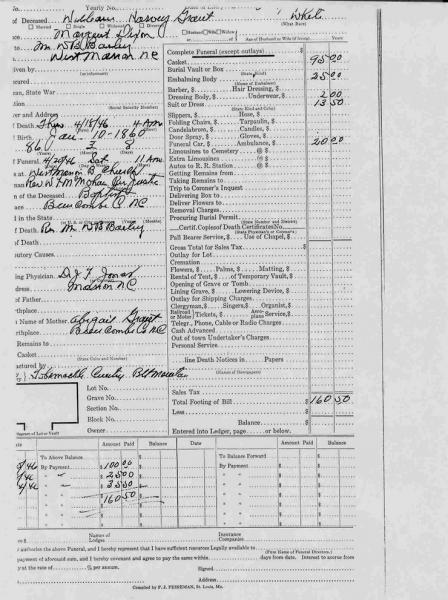 Yearly No.
of Deceased William Harvey Grant White
(What Race)
Married Single Widowed Divorced Husband Wife Widow Age of Husband or Wife (if living) Years
Margaret Dixon
Mr. W B Bailey
West Marion N C
given by
(as informant)
ran, State War
(Social Security Number)
er and Address
f Death Thurs 4/18/46 4 A M
Birth Jan. 10-1860
86 3 8
(Years) (Months) (Days)
f Funeral 4/20/46 Sat 11 A m
at West Marion B. Church
n of the Deceased Baptist
Buncombe Co N C
in the State
f Death
f Death
utory Causes
ing Physician
dress Marion N C
of Father
thplace
Name of Mother Abigail Grant
thplace Buncombe Co N C
Remains to
Casket
(State Color and Number)
actured by
Lot No.
Grave No.
Section No.
Block No.
Owner
Diagram of Lot or Vault
Complete Funeral (except outlays)
Casket 95 00
Burial Vault or Box
(State Kind)
Embalming Body 25 00
(Name of Embalmer)
Barber, $ Hair Dressing, $
Dressing Body, $ Underwear, $ 2 00
Suit or Dress 13 50
(State Kind and Color)
Slippers, $ Hose, $
Folding Chairs, $ Tarpaulin, $
Candelabrum, $ Candles, $
Door Spray, $ Gloves, $
Funeral Car, $ Ambulance, $ 20 00
Limousines to Cemetery @ $
Extra Limousines @ $
Autos to R. R. Station @ $
Getting Remains from
Taking Remains to
Trip to Coroner's Inquest
Delivering Box to
Deliver Flowers to
Removal Charges
Procuring Burial Permit
(State Number and District)
Certif. Copies of Death Certificates No.
(State Physician's or Coroner's)
Pall Bearer Service, $ Use of Chapel, $
Gross Total for Sales Tax $
Outlay for Lot
Cremation
Flowers, $ Palms, $ Matting, $
Rental of Tent, $ of Temporary Vault, $
Opening of Grave or Tomb
Lining Grave, $ Lowering Device, $
Outlay for Shipping Charges
Clergyman, $ Singers, $ Organist, $
Railroad or Motor Tickets, $ Aeroplane Service, $
Telegr., Phone, Cable or Radio Charges
Cash Advanced
Out of town Undertaker's Charges
Personal Service
line Death Notices in Papers
(Names of Newspapers)
Sales Tax $
Total Footing of Bill $ 160 50
Less $
Balance $
Entered into Ledger, page or below.
Amount Paid Balance Date Amount Paid Balance
To Above Balance To Balance Forward
By Payment $ 100 00 By Payment
" " 25 00
" " 35 50
" " 160 50
Names of Lodges
Insurance Companies
authorize the above Funeral, and I hereby represent that I have sufficient resources Legally available to
(Firm Name of Funeral Director.)
payment of aforesaid sum, and I hereby covenant and agree to pay the same within days from date. Interest to accrue from
at the rate of % per annum. Signed
Address
Compiled by F. J. FEINEMAN, St. Louis, Mo.